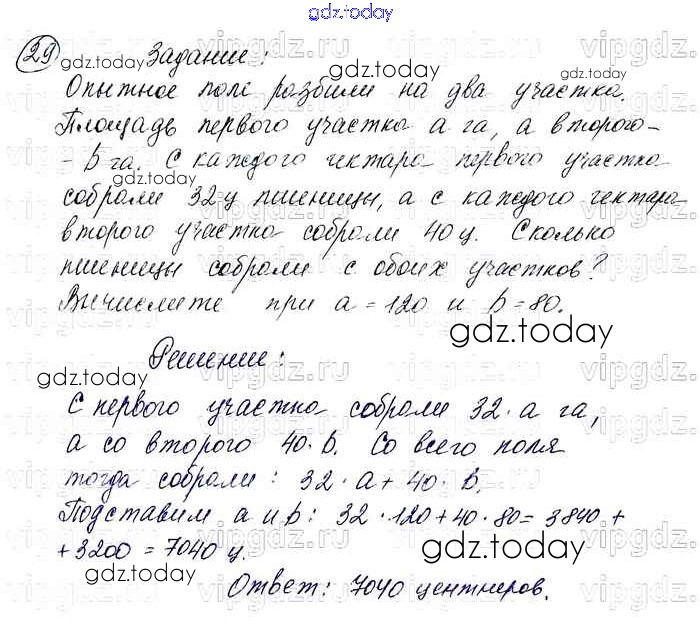 gdz.today
29 Задание:
Опытное поле разбили на два участка.
Площадь первого участка a га, а второго -
- b га. С каждого гектара первого участка
собрали 32 ц пшеницы, а с каждого гектара
второго участка собрали 40 ц. Сколько
пшеницы собрали с обоих участков?
Вычислите при a = 120 и b = 80.
Решение:
С первого участка собрали 32 · a га,
а со второго 40 · b. Со всего поля
тогда собрали: 32 · a + 40 · b.
Подставим a и b: 32 · 120 + 40 · 80 = 3840 +
+ 3200 = 7040 ц.
Ответ: 7040 центнеров.